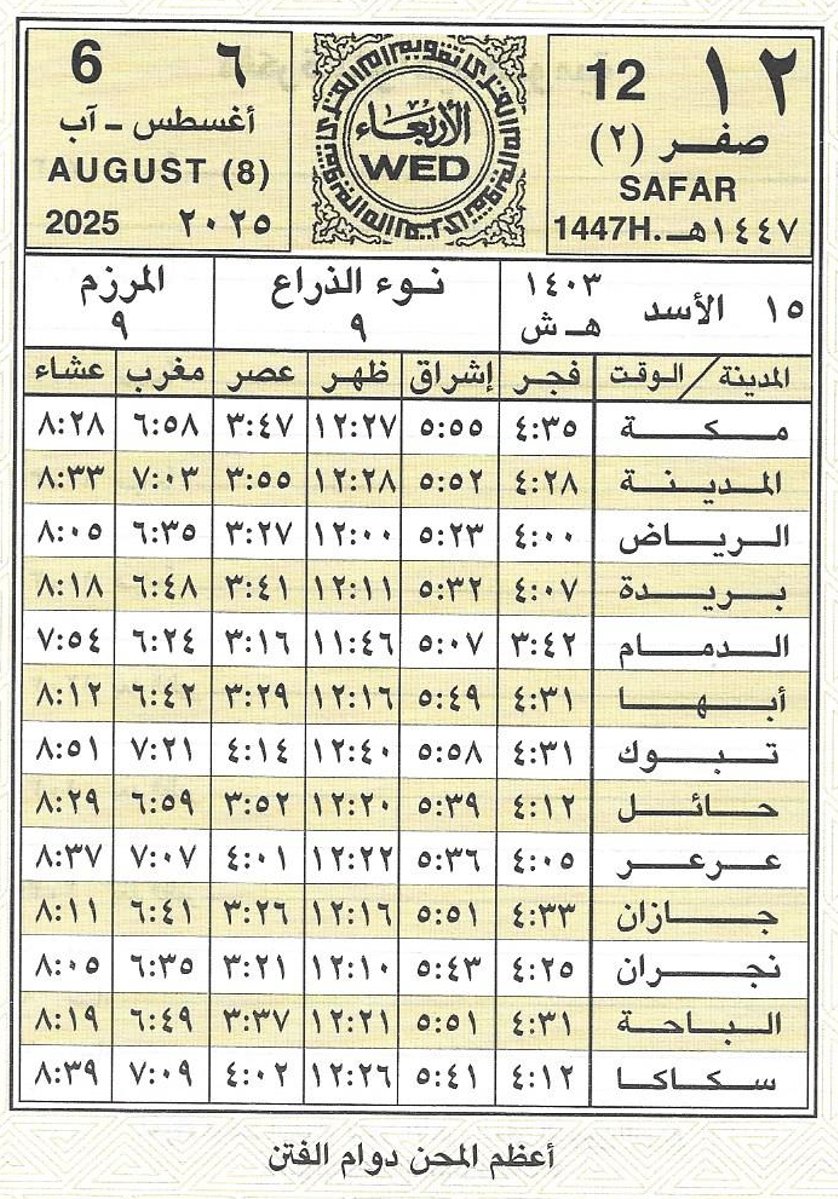 ١٢ 12
صفر (٢)
SAFAR
١٤٤٧هـ 1447H.
تقويم أم القرى
الأربعاء
WED
6 ٦
أغسطس – آب
AUGUST (8)
2025 ٢٠٢٥
١٥ الأسد ١٤٠٣ هـ ش
نوء الذراع ٩
المرزم ٩
المدينة / الوقت فجر إشراق ظهر عصر مغرب عشاء
مكة ٤:٣٥ ٥:٥٥ ١٢:٢٧ ٣:٤٧ ٦:٥٨ ٨:٢٨
المدينة ٤:٢٨ ٥:٥٢ ١٢:٢٨ ٣:٥٥ ٧:٠٣ ٨:٣٣
الرياض ٤:٠٠ ٥:٢٣ ١٢:٠٠ ٣:٢٧ ٦:٣٥ ٨:٠٥
بريدة ٤:٠٧ ٥:٣٢ ١٢:١١ ٣:٤١ ٦:٤٨ ٨:١٨
الدمام ٣:٤٢ ٥:٠٧ ١١:٤٦ ٣:١٦ ٦:٢٤ ٧:٥٤
أبها ٤:٣١ ٥:٤٩ ١٢:١٦ ٣:٢٩ ٦:٤٢ ٨:١٢
تبوك ٤:٣١ ٥:٥٨ ١٢:٤٠ ٤:١٤ ٧:٢١ ٨:٥١
حائل ٤:١٢ ٥:٣٩ ١٢:٢٠ ٣:٥٢ ٦:٥٩ ٨:٢٩
عرعر ٤:٠٥ ٥:٣٦ ١٢:٢٢ ٤:٠١ ٧:٠٧ ٨:٣٧
جازان ٤:٣٣ ٥:٥١ ١٢:١٦ ٣:٢٦ ٦:٤١ ٨:١١
نجران ٤:٢٥ ٥:٤٣ ١٢:١٠ ٣:٢١ ٦:٣٥ ٨:٠٥
الباحة ٤:٣١ ٥:٥١ ١٢:٢١ ٣:٣٧ ٦:٤٩ ٨:١٩
سكاكا ٤:١٢ ٥:٤١ ١٢:٢٦ ٤:٠٢ ٧:٠٩ ٨:٣٩
أعظم المحن دوام الفتن